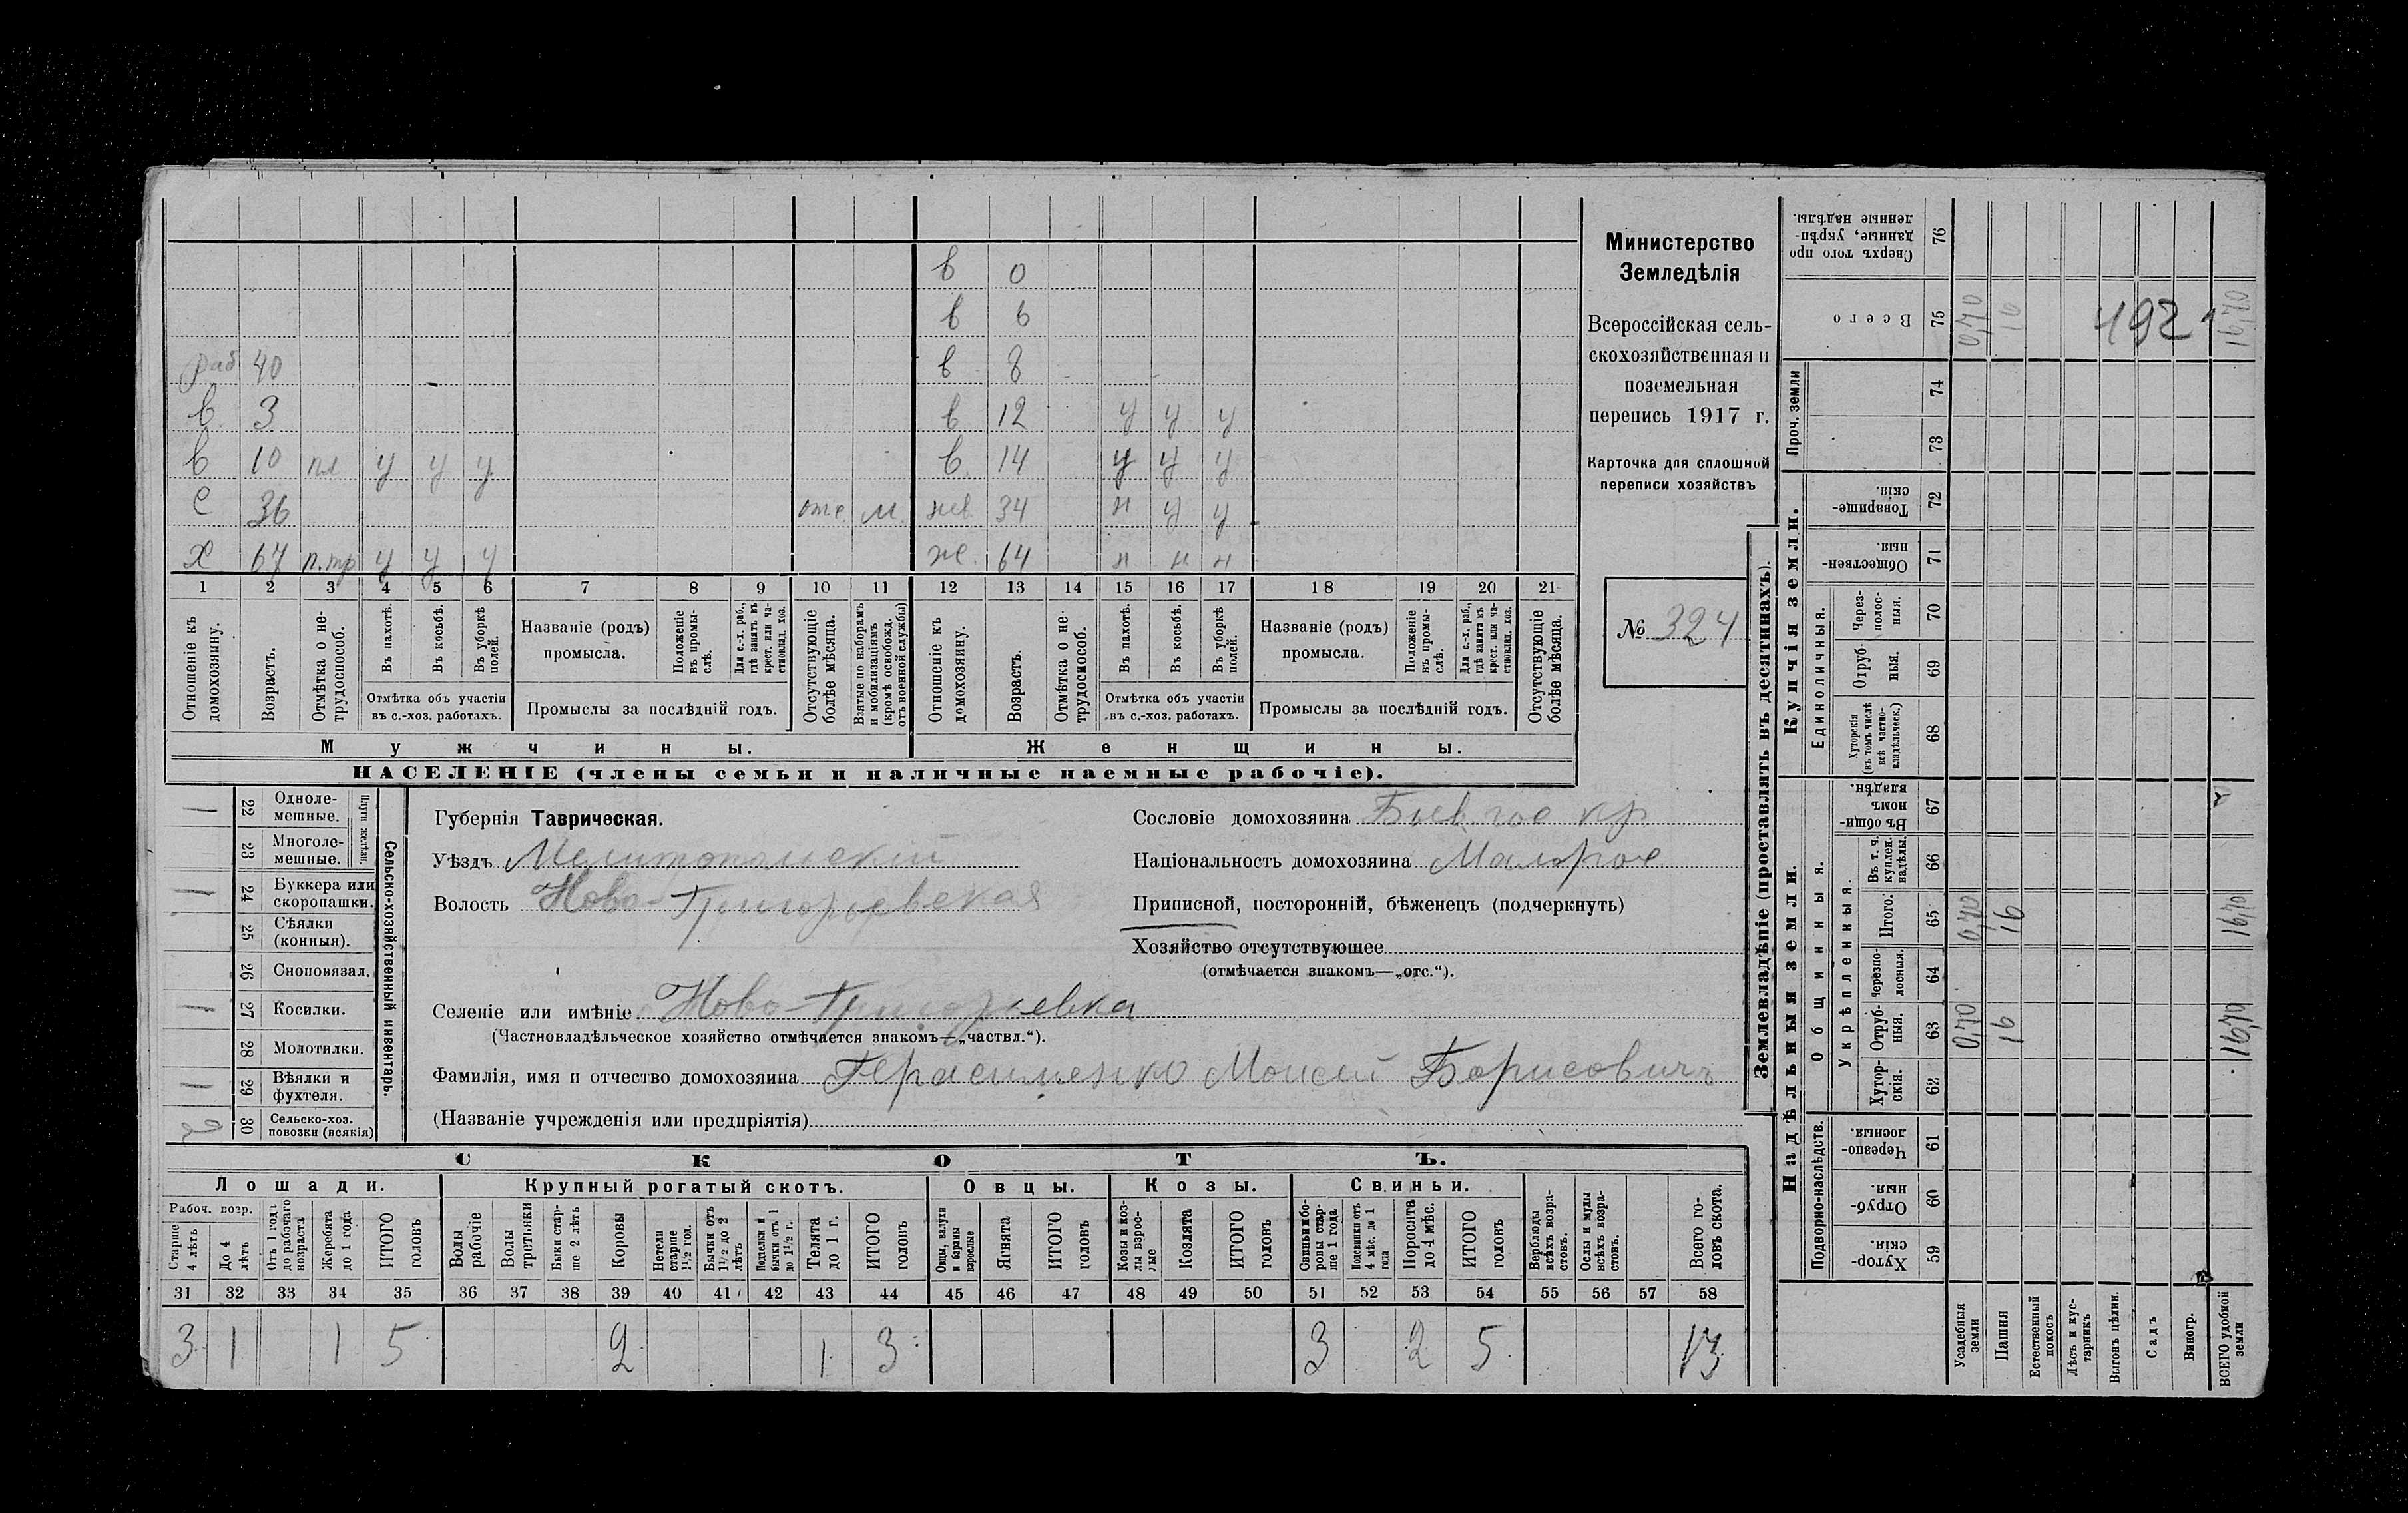 Министерство
Земледѣлія
Всероссійская сель-
скохозяйственная и
поземельная
перепись 1917 г.
Карточка для сплошной
переписи хозяйствъ
№ 324
в 0
в 6
раб 40 в 8
в 3 в 12 у у у
в 10 пл у у у в 14 у у у
с 36 отс. м. нев 34 н у у
х 67 п.тр у у у ж. 64 н н н
1 2 3 4 5 6 7 8 9 10 11 12 13 14 15 16 17 18 19 20 21
Отношеніе къ домохозяину.
Возрастъ.
Отмѣтка о не-трудоспособ.
Въ пахотѣ.
Въ косьбѣ.
Въ уборкѣ полей.
Отмѣтка объ участіи
въ с.-хоз. работахъ.
Названіе (родъ)
промысла.
Положеніе въ промы-слѣ.
Для с.-х. раб., гдѣ занятъ въ крест. или ча-стновлад. хоз.
Промыслы за послѣдній годъ.
Отсутствующіе болѣе мѣсяца.
Взятые по наборамъ и мобилизаціямъ (кромѣ освобожд. отъ военной службы)
Отношеніе къ домохозяину.
Возрастъ.
Отмѣтка о не-трудоспособ.
Въ пахотѣ.
Въ косьбѣ.
Въ уборкѣ полей.
Отмѣтка объ участіи
въ с.-хоз. работахъ.
Названіе (родъ)
промысла.
Положеніе въ промы-слѣ.
Для с.-х. раб., гдѣ занята въ крест. или ча-стновлад. хоз.
Промыслы за послѣдній годъ.
Отсутствующіе болѣе мѣсяца.
Мужчины. Женщины.
НАСЕЛЕНІЕ (члены семьи и наличные наемные рабочіе).
Сельско-хозяйственный инвентарь.
Плуги желѣзн.
1 22 Одноле-мешные.
23 Многоле-мешные.
1 24 Буккера или скоропашки.
25 Сѣялки (конныя).
26 Сноповязал.
1 27 Косилки.
28 Молотилки.
1 29 Вѣялки и фухтеля.
2 30 Сельско-хоз. повозки (всякія)
Губернія Таврическая.
Уѣздъ Мелитопольскій
Волость Ново-Григорьевская
Сословіе домохозяина Быв. гос кр
Національность домохозяина Малорос
Приписной, посторонній, бѣженецъ (подчеркнуть)
Хозяйство отсутствующее
(отмѣчается знакомъ—„отс.“).
Селеніе или имѣніе Ново-Григорьевка
(Частновладѣльческое хозяйство отмѣчается знакомъ—„частвл.“).
Фамилія, имя и отчество домохозяина Герасименко Моисей Борисовичъ
(Названіе учрежденія или предпріятія)
СКОТЪ.
Лошади. Крупный рогатый скотъ. Овцы. Козы. Свиньи.
Рабоч. возр.
Старше 4 лѣтъ
До 4 лѣтъ
Отъ 1 года до рабочаго возраста
Жеребята до 1 года
ИТОГО головъ
Волы рабочіе
Волы третьяки
Быки стар-ше 2 лѣтъ
Коровы
Нетели старше 1½ год.
Бычки отъ 1½ до 2 лѣтъ
Подтелки и бычки отъ 1 до 1½ г.
Телята до 1 г.
ИТОГО головъ
Овцы, валухи и бараны взрослые
Ягнята
ИТОГО головъ
Козы и коз-лы взрос-лые
Козлята
ИТОГО головъ
Свиньи и бо-ровы стар-ше 1 года
Подсвинки отъ 4 мѣс. до 1 года
Поросята до 4 мѣс.
ИТОГО головъ
Верблюды всѣхъ возра-стовъ.
Ослы и мулы всѣхъ возра-стовъ.
Всего го-ловъ скота.
31 32 33 34 35 36 37 38 39 40 41 42 43 44 45 46 47 48 49 50 51 52 53 54 55 56 57 58
3 1 1 5 2 1 3 3 2 5 13
Землевладѣніе (проставлять въ десятинахъ).
Надѣльныя земли. Купчія земли.
Подворно-наслѣдств. Общинныя. Единоличныя. Проч. земли
Укрѣпленныя.
Хутор-скія. 59
Отруб-ныя. 60
Черезпо-лосныя. 61
Хутор-скія. 62
Отруб-ныя. 63 0,70 16 16,70
Черезпо-лосныя. 64
Итого. 65 0,70 16 16,70
Въ т. ч. куплен. надѣлы. 66
Въ общи-номъ владѣн. 67
Хуторскія (въ томъ числѣ всѣ частно-владѣльческ.) 68
Отруб-ныя. 69
Черезполос-ныя. 70
Обществен-ныя. 71
Товарище-скія. 72
73
74
Всего 75 0,70 16 492 16,70
Сверхъ того про-данные, укрѣп-ленные надѣлы. 76
Усадебныя земли
Пашня
Естественный покосъ
Лѣсъ и кус-тарникъ
Выгонъ цѣлин.
Садъ
Виногр.
ВСЕГО удобной земли